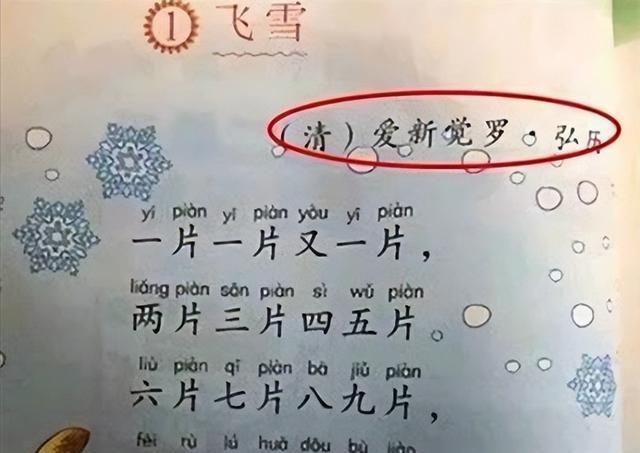 1 飞雪
（清）爱新觉罗·弘历
yí piàn yí piàn yòu yí piàn
一片一片又一片，
liǎng piàn sān piàn sì wǔ piàn
两片三片四五片。
liù piàn qī piàn bā jiǔ piàn
六片七片八九片，
fēi rù lú huā dōu bú jiàn